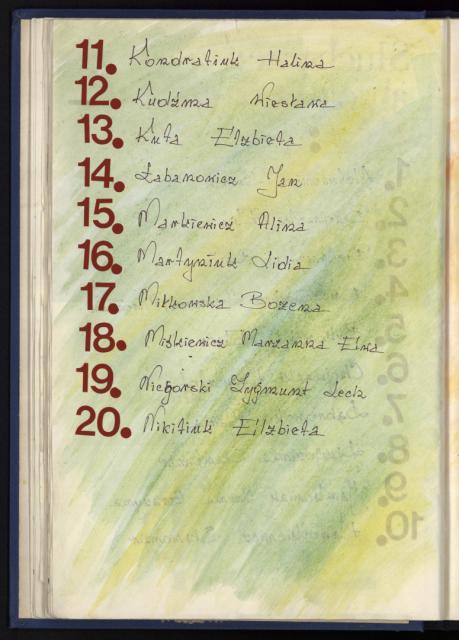 11. Kondratiuk Halina
12. Kudźma Wiesława
13. Kuta Elżbieta
14. Łabanowicz Jan
15. Markiewicz Alina
16. Martyniuk Lidia
17. Miłkowska Bożena
18. Miśkiewicz Marzanna Elwa
19. Niegorski Zygmunt Lech
20. Nikitiuk Elżbieta